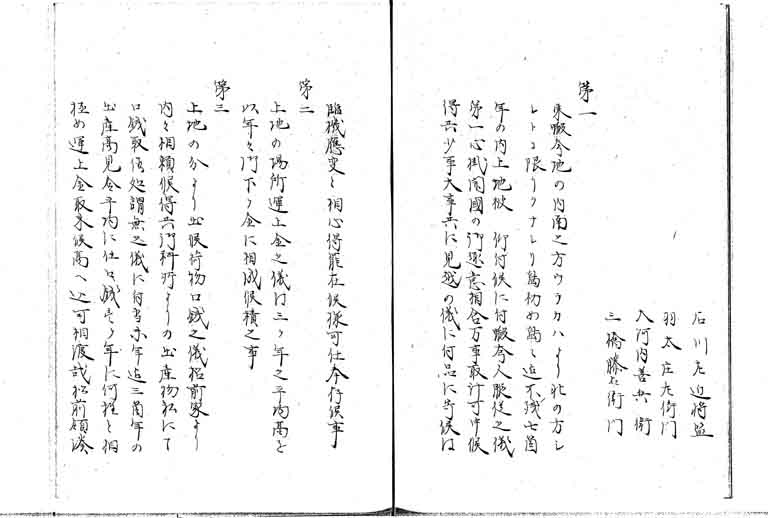 石川左近将監
羽太庄左衛門
大河内善兵衛
三橋藤右衛門
第一
東蝦夷地の内南之方ウラカハより北の方シ
レトコ限りクナシリ島初め島々迄不残七ヶ
年の内上地被 仰付候に付蝦夷人服従之儀
第一心掛開国の御趣意相含万事取計可申候
得共少事大事共に見越の儀に付品に寄候は
臨機應変と相心得罷在候様可仕奉存候事
第二
上地の場所運上金之儀は三ヶ年之平均高を
以年々御下ヶ金に相成候積之事
第三
上地の分より出候荷物口銭之儀松前家より
内々相願候得共御料所よりの出産物私にて
口銭取候処謂無之儀に付当未年迄三箇年の
出産高見合平均に仕口銭壱ヶ年に何程と相
極め運上金取来候高へ迄可相渡哉松前領湊